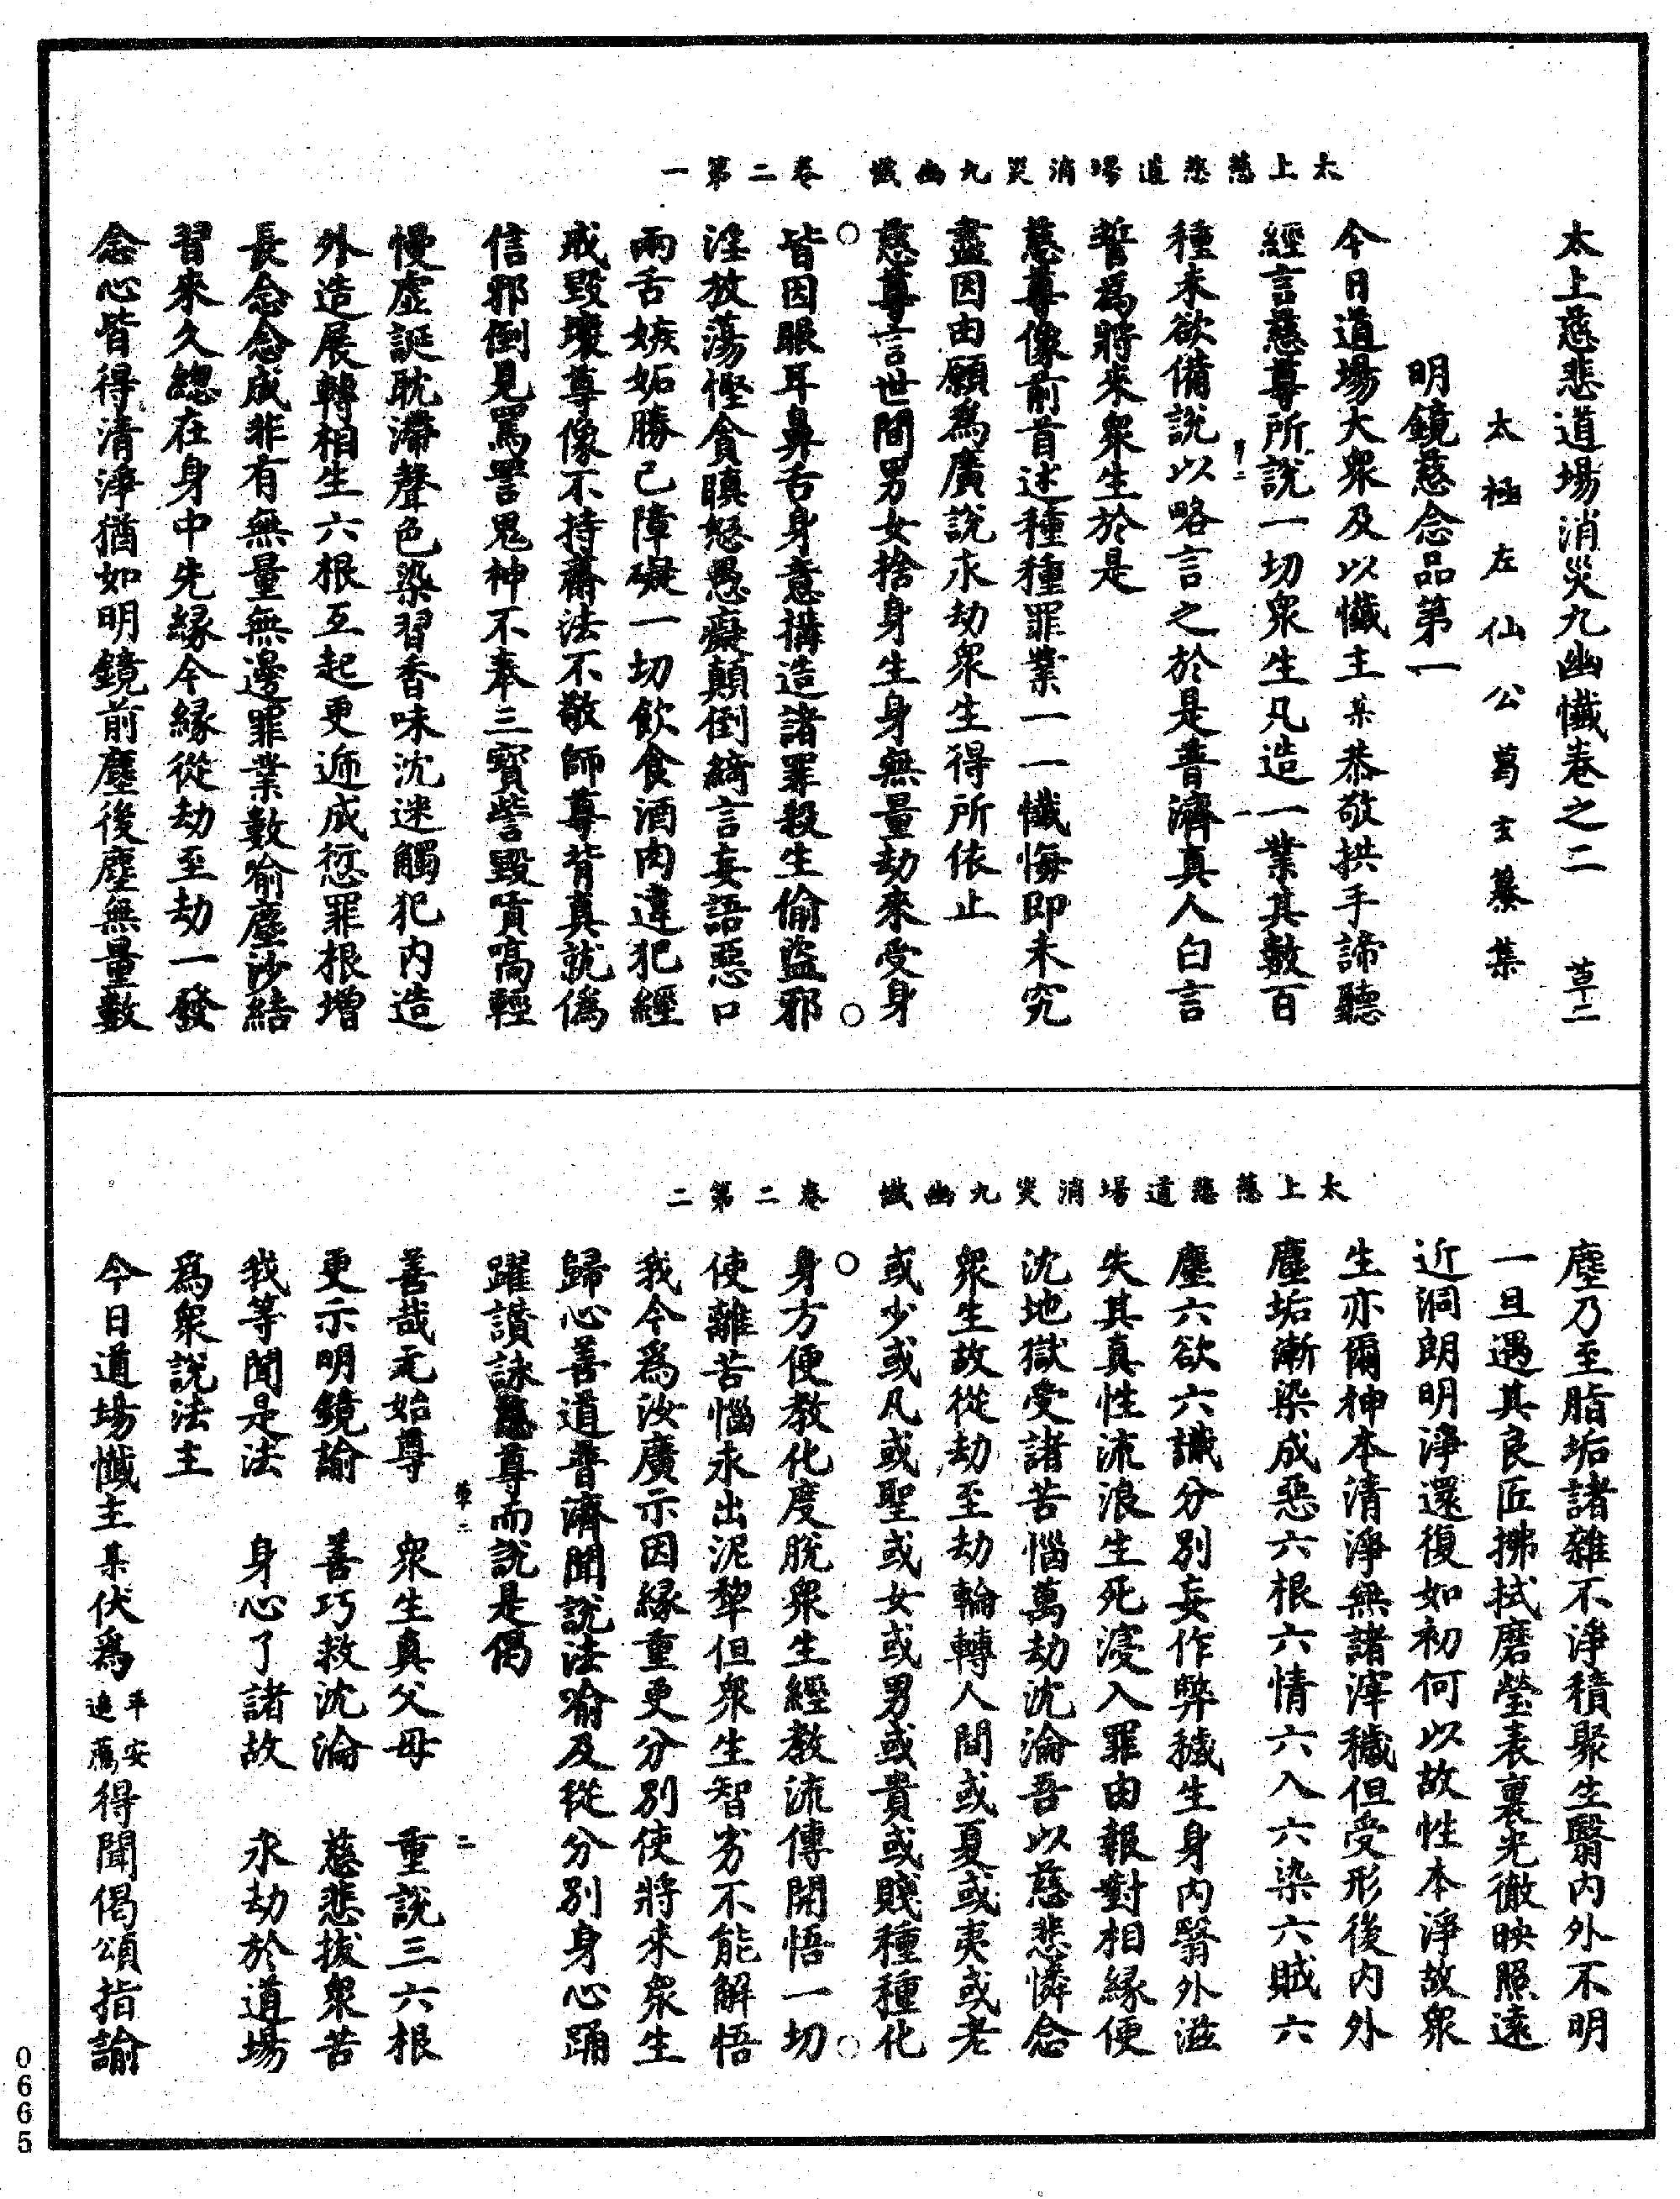 太上慈悲道場消災九幽懺　卷二第一
太上慈悲道場消災九幽懺卷之二　草二
太極左仙公葛玄纂集
明鏡慈念品第一
今日道場大衆及以懺主某恭敬拱手諦聽
經言慈尊所說一切衆生凡造一業其數百
種未欲備說以略言之於是普濟真人白言
誓爲將來衆生於是
慈尊像前首述種種罪業一一懺悔即未究
盡因由願爲廣說永劫衆生得所依止
慈尊言世間男女捨身生身無量劫來受身
皆因眼耳鼻舌身意搆造諸罪殺生偷盜邪
淫放蕩慳貪瞋怒愚癡顛倒綺言妄語惡口
兩舌嫉妬勝己障礙一切飲食酒肉違犯經
戒毀壞尊像不持齋法不敬師尊背真就僞
信邪倒見罵詈鬼神不奉三寶訾毀嘖嗃輕
慢虛誕耽滯聲色染習香味沈迷觸犯內造
外造展轉相生六根互起更遞成愆罪根增
長念念成非有無量無邊罪業數喻塵沙結
習來久緫在身中先緣今緣從劫至劫一發
念心皆得清淨猶如明鏡前塵後塵無量數
太上慈悲道場消災九幽懺　卷二第二
塵乃至脂垢諸雜不淨積聚生翳內外不明
一旦遇其良匠拂拭磨瑩表裏光徹映照遠
近洞朗明淨還復如初何以故性本淨故衆
生亦爾神本清淨無諸滓穢但受形後內外
塵垢漸染成惡六根六情六入六染六賊六
塵六欲六識分別妄作弊穢生身內翳外滋
失其真性流浪生死寖入罪由報對相緣便
沈地獄受諸苦惱萬劫沈淪吾以慈悲憐念
衆生故從劫至劫輪轉人間或夏或夷或老
或少或凡或聖或女或男或貴或賤種種化
身方便教化度脫衆生經教流傳開悟一切
使離苦惱永出泥犂但衆生智劣不能解悟
我今爲汝廣示因緣重更分別使將來衆生
歸心善道普濟聞說法喻及從分別身心踊
躍讚詠慈尊而說是偈
善哉元始尊　衆生真父母　重說三六根
更示明鏡諭　善巧救沈淪　慈悲拔衆苦
我等聞是法　身心了諸故　永劫於道場
爲衆說法主
今日道場懺主某伏爲平安遠薦得聞偈頌指諭
0665